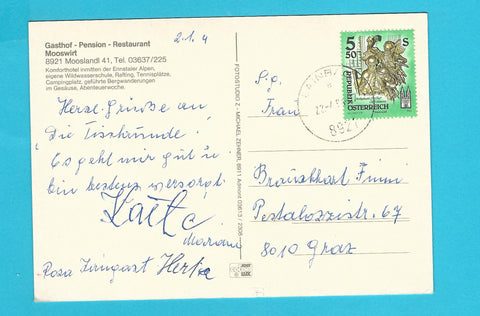 Gasthof - Pension - Restaurant
Mooswirt
8921 Mooslandl 41, Tel. 03637/225
Komforthotel inmitten der Ennstaler Alpen,
eigene Wildwasserschule, Rafting, Tennisplätze,
Campingplatz, geführte Bergwanderungen
im Gesäuse, Abenteuerwoche.
2.1.4
Herzl. Grüße an
"Die Tischrunde!
Es geht mir gut u.
bin bestens versorgt.
Rosa Herta
FOTOSTUDIO Z. MICHAEL ZEHNER, 8911 Admont 03613 / 2308
5 50
S
REPUBLIK
ÖSTERREICH
8921
S.g.
Frau
Pestalozzistr. 67
8010 Graz